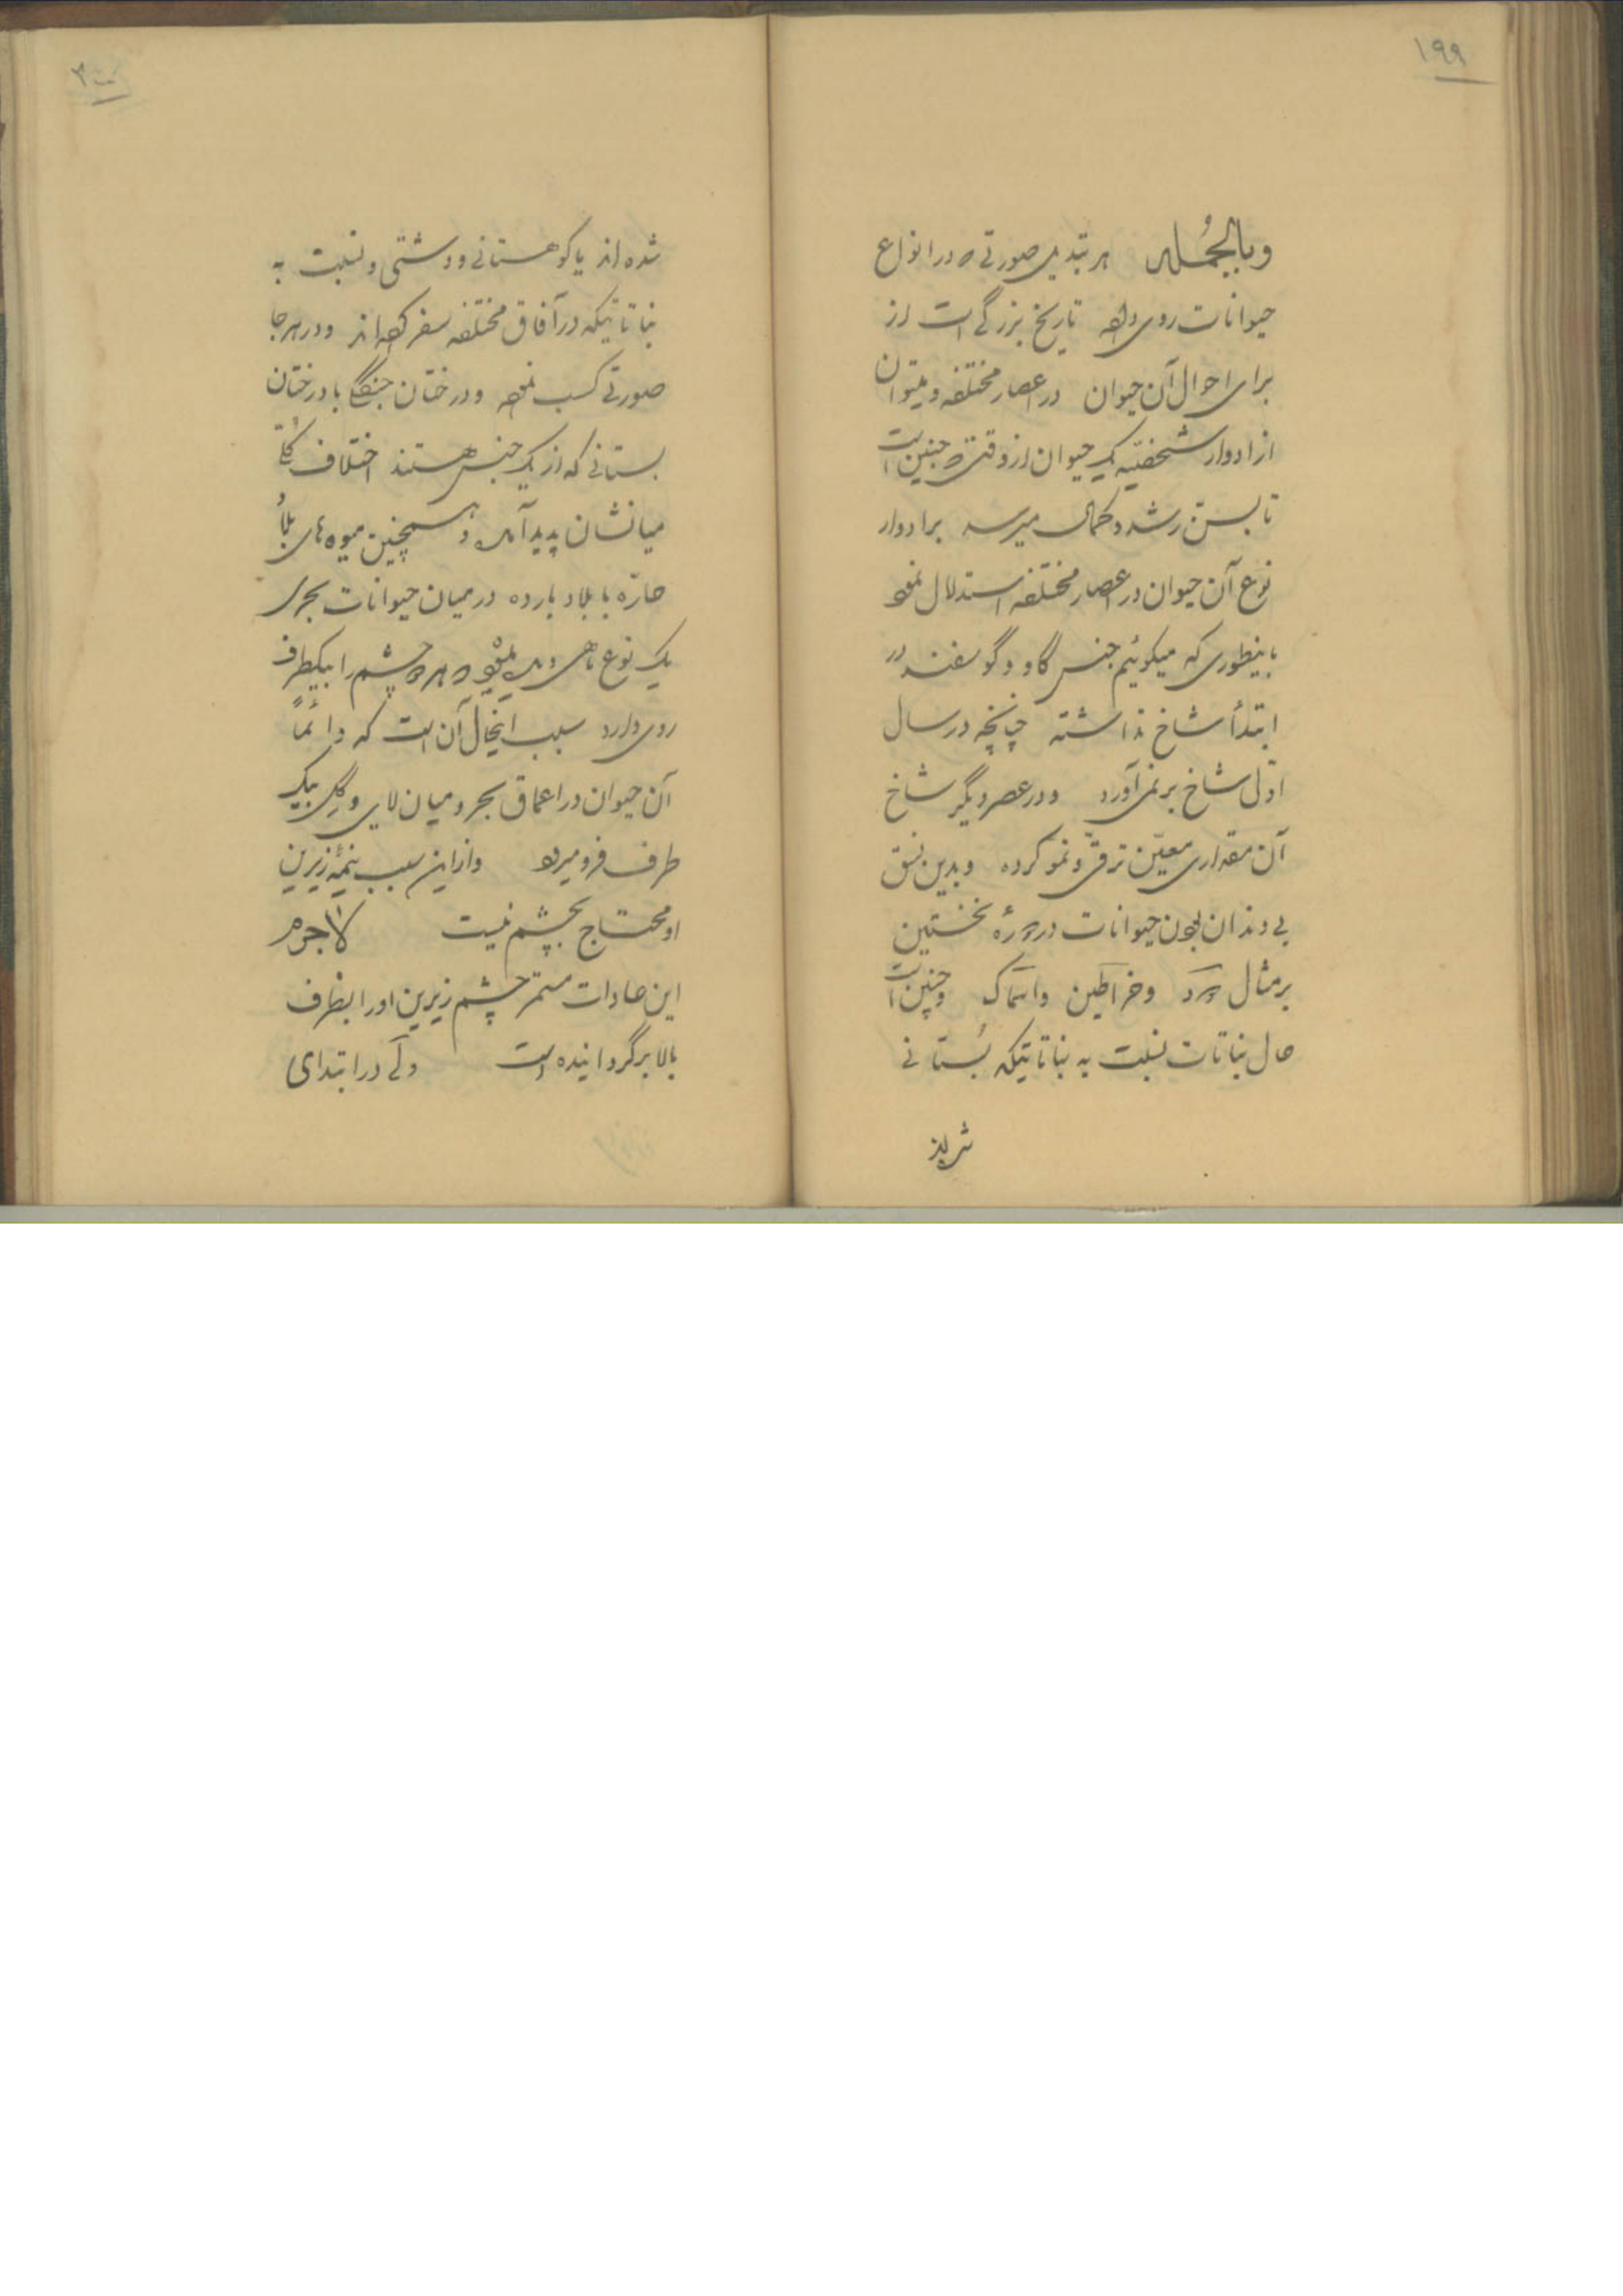 ۱۹۹
وبالجُمله هر تبدیل صورتی که در انواع
حیوانات روی داده تاریخ بزرگی است از
برای احوال آن حیوان در اعصار مختلفه و میتوان
از ادوار شخصّیه یک حیوان از وقتی که جنین است
تا بسنّ رشد و کمال میرسد بر ادوار
نوع آن حیوان در اعصار مختلفه استدلال نمود
باینطوری که میگوئیم جنس گاو و گوسفند در
ابتدأ شاخ نداشته چنانچه در سال
اوّل شاخ بر نمی‌آورد و در عصر دیگر شاخ
آن مقداری معیّن ترقّی و نمو کرده و بدین نسق
بی دندان بودن حیوانات در دورهٔ نخستین
بر مثال دود وخراطین واسماک وچنین است
حال نباتات نسبت به نباتاتیکه بُستانی
شده‌اند
۲۰۰
شده‌اند یا کوهستانی و دشتی و نسبت به
نباتاتیکه در آفاق مختلفه سفر کرده‌اند ودر هر جا
صورتی کسب نموده ودرختان جنگلی با درختان
بستانی که از یک جنس هستند اختلاف کُلّی
میانشان پدید آمده وهمچنین میوه‌های بلاد
حارّه با بلاد بارده در میان حیوانات بحری
یک نوع ماهی دیده میشود که هر دو چشم را بیکطرف
روی دارد سبب اینحال آن است که دائماً
آن حیوان در اعماق بحر و میان لای و گِل بیک
طرف فرو میرود وازاین سبب نیمهٔ زیرین
او محتاج بچشم نیست لاجرم
این عادات مستمر چشم زیرین اورا بطرف
بالا برگردانیده است ولی در ابتدای